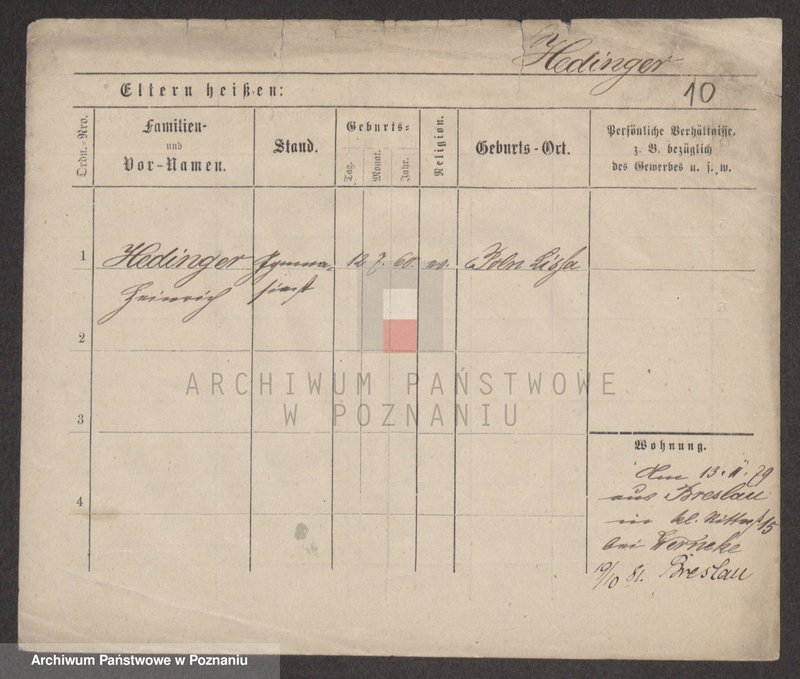 Hedinger
10
Eltern heißen:
Ordn.-Nro.
Familien-
und
Vor-Namen.
Stand.
Geburts-
Tag.
Monat.
Jahr.
Religion.
Geburts-Ort.
Persönliche Verhältnisse,
z. B. bezüglich
des Gewerbes u. s. w.
1
Hedinger Gymna- 12 7. 60. Poln Lissa
Heinrich siast
2
3
4
ARCHIWUM PAŃSTWOWE
W POZNANIU
Wohnung.
Am 13. 11. 79
aus Breslau
in kl. Ritterst 15
bei Werneke
19/10 81. Breslau
Archiwum Państwowe w Poznaniu